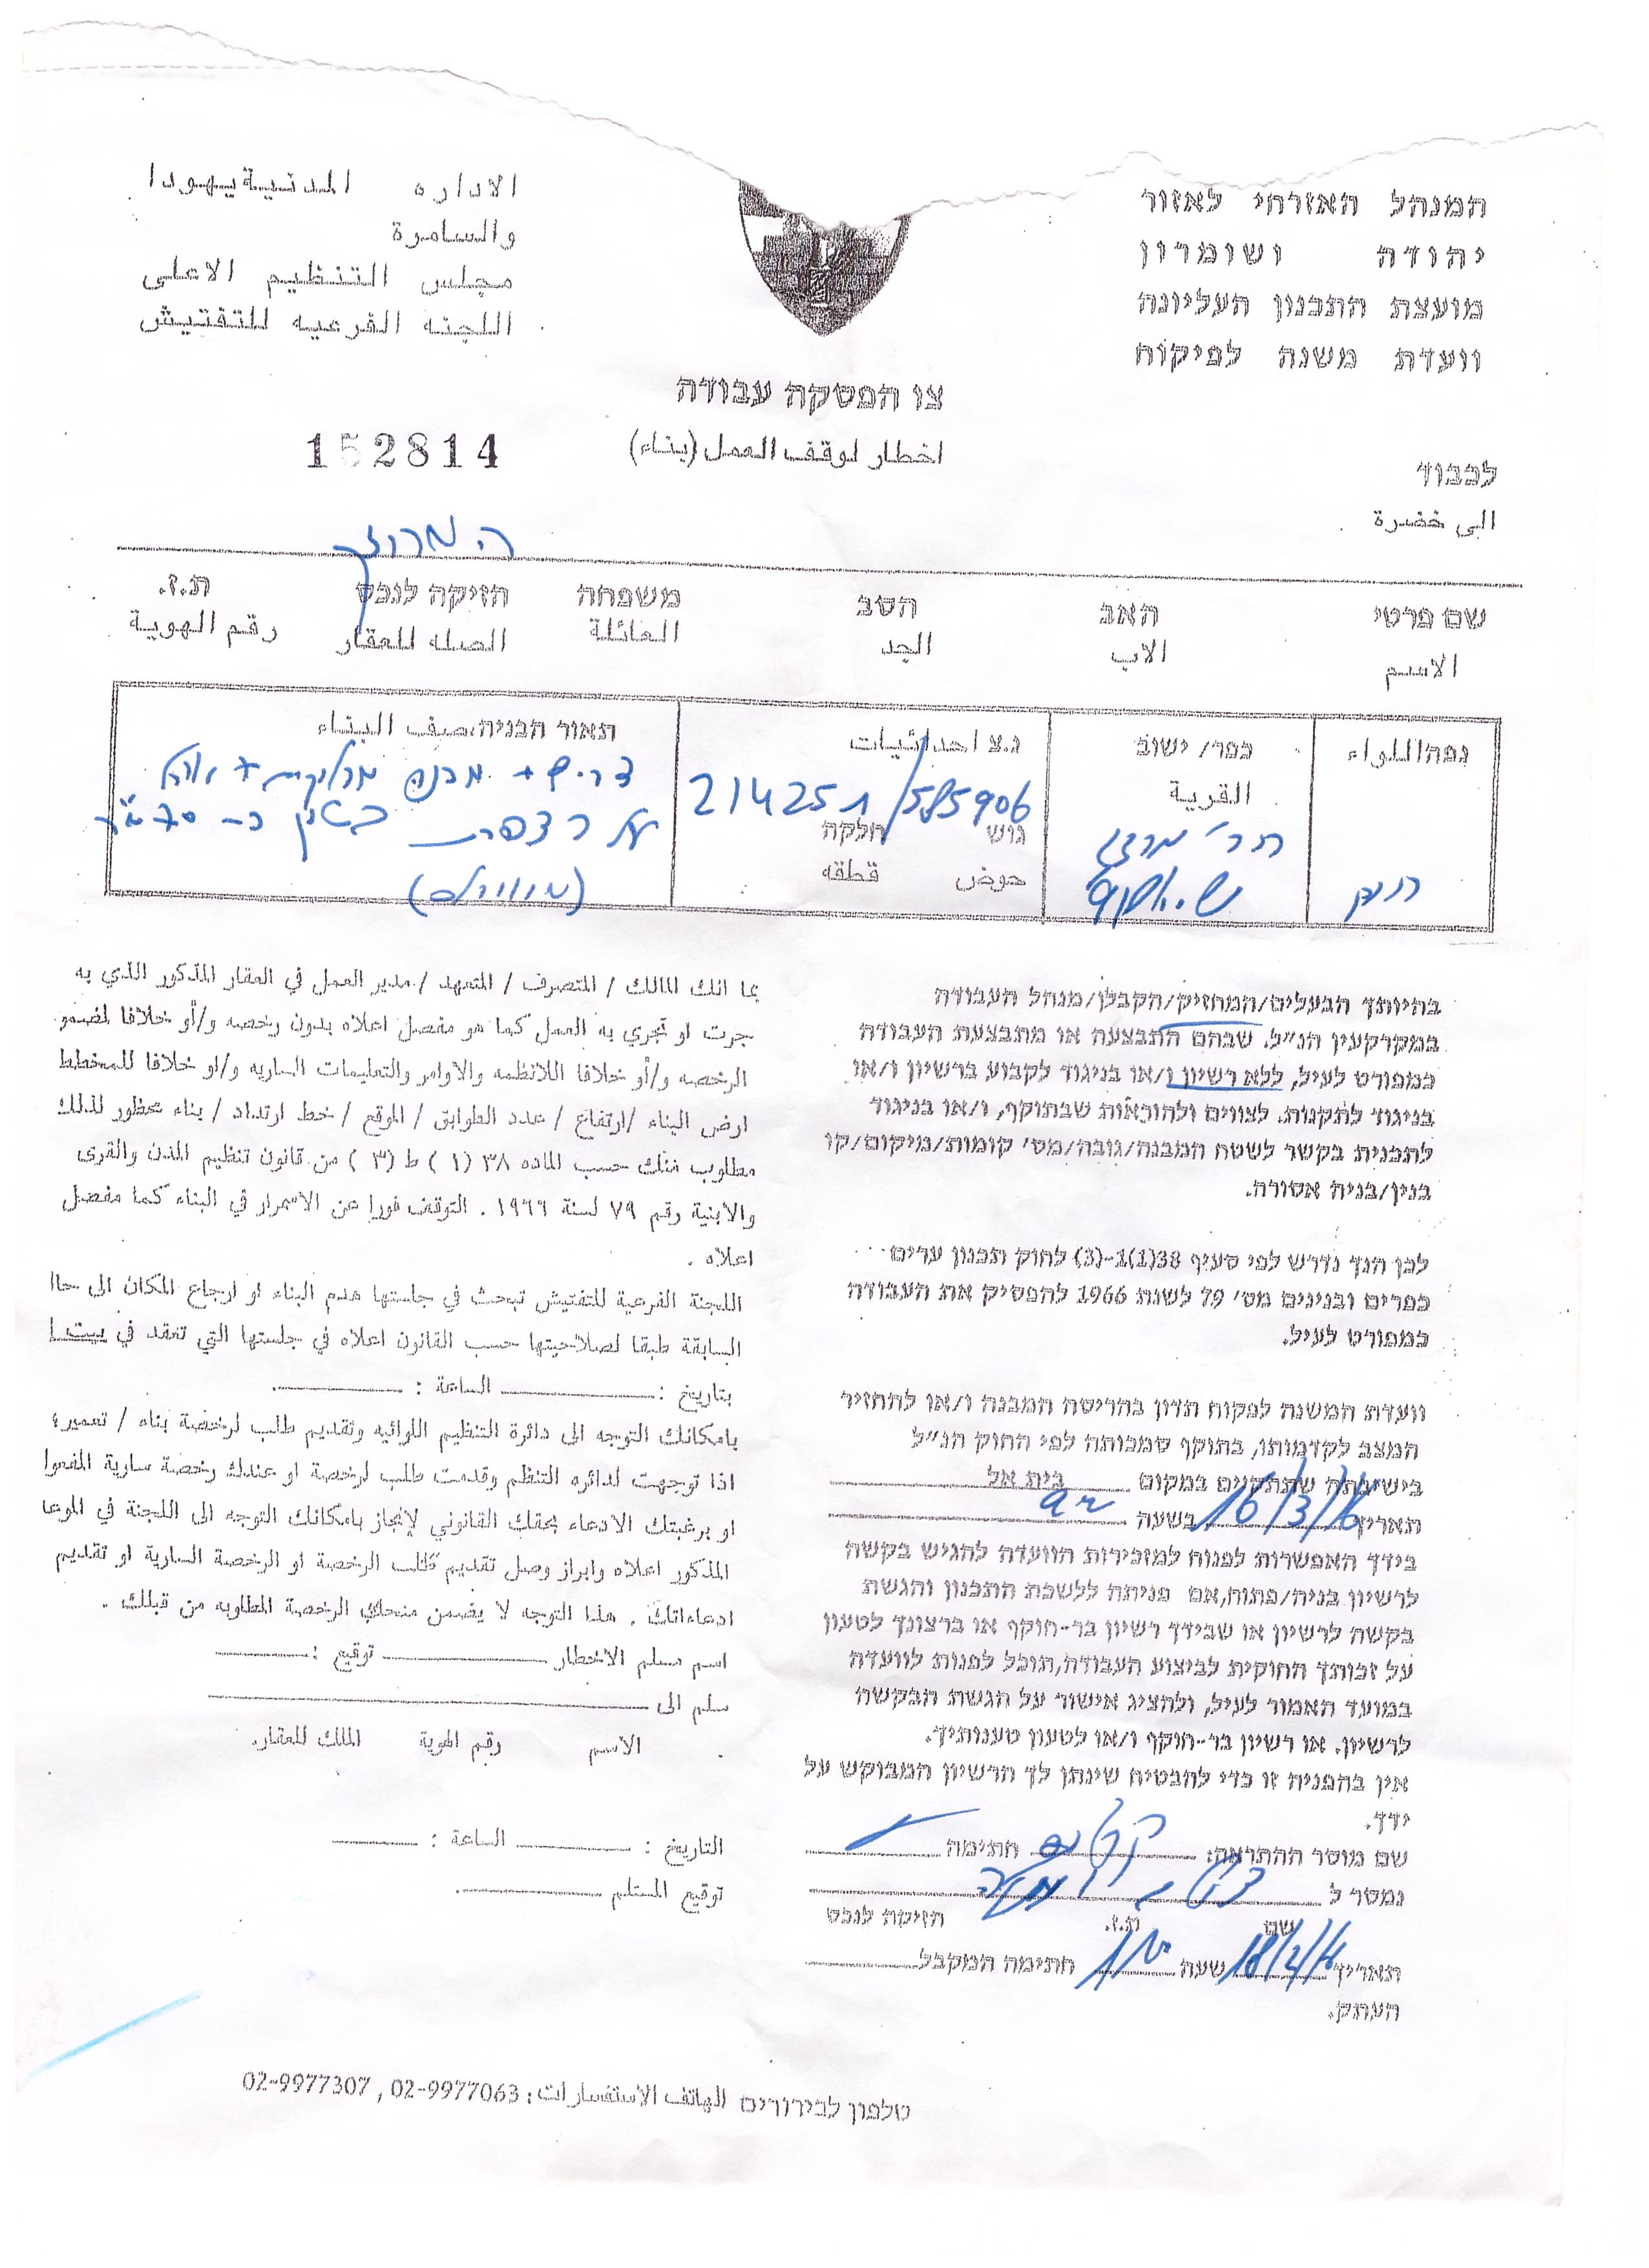 המנהל האזרחי לאזור
יהודה ושומרון
מועצת התכנון העליונה
וועדת משנה לפיקוח
الاداره المدنية يهودا
والسامرة
مجلس التنظيم الاعلى
اللجنه الفرعيه للتفتيش
צו הפסקה עבודה
اخطار لوقف العمل (بناء)
152814
לכבוד
الى حضرة
שם פרטי האב הסב משפחה חזיקה לנכס ת.ז.
الاسم الاب الجد العائلة الصله للعقار رقم الهوية
נפה اللواء
כפר/ ישוב
القرية
נ.צ احداثيات
214251/585906
גוש חלקה
حوض قطقه
תאור הבניה، صيف البناء
בהיותך הבעלים/המחזיק/הקבלן/מנהל העבודה
במקרקעין הנ״ל. שבהם התבצעה או מתבצעת העבודה
כמפורט לעיל, ללא רשיון ו/או בניגוד לקבוע ברשיון ו/או
בניגוד לתקנות. לצווים ולהוראות שבתוקף, ו/או בניגוד
לתכנית בקשר לשטח המבנה/גובה/מס׳ קומות/מיקום/קו
בנין/בניה אסורה.
לכן הנך נדרש לפי סעיף 38(1)1-(3) לחוק תכנון ערים
כפרים ובנינים מס׳ 79 לשנת 1966 להפסיק את העבודה
כמפורט לעיל.
וועדת המשנה לפקוח תדון בהריסת המבנה ו/או להחזיר
המצב לקדמותו, בתוקף סמכותה לפי החוק הנ״ל
בישיבתה שתתקיים במקום בית אל
תאריך 16/3/16 בשעה
בידך האפשרות לפנות למזכירות הוועדה להגיש בקשה
לרשיון בניה/פתוח, אם פניתה ללשכת התכנון והגשת
בקשה לרשיון או שבידך רשיון בר-תוקף או ברצונך לטעון
על זכותך החוקית לביצוע העבודה, תוכל לפנות לוועדה
במועד האמור לעיל, ולהציג אישור על הגשת הבקשה
לרשיון. או רשיון בר-תוקף ו/או לטעון טענותיך.
אין בהפניה זו כדי להבטיח שינתן לך הרשיון המבוקש על
ידך.
שם מוסר ההתראה: חתימה
נמסר ל
שם ת.ז. חזיקה לנכס
תאריך 18/2/16 שעה חתימה המקבל
העתק.
بما انك المالك / المتصرف / المتعهد / مدير العمل في العقار المذكور الذي به
جرت او تجري به العمل كما هو مفصل اعلاه بدون رخصه و/أو خلافا لمضمو
الرخصه و/أو خلافا اللانظمه والاوامر والتعليمات الساريه و/او خلافا للمخطط
ارض البناء /ارتفاع / عدد الطوابق / الموقع / خط ارتداد / بناء محظور لذلك
مطلوب منك حسب الماده ٣٨ (١) ط (٣) من قانون تنظيم المدن والقرى
والابنية رقم ٧٩ لسنة ١٩٦٦ . التوقف فورا عن الاستمرار في البناء كما مفصل
اعلاه .
اللجنة الفرعية للتفتيش تبحث في جلستها هدم البناء او ارجاع المكان الى حاا
السابقة طبقا لصلاحيتها حسب القانون اعلاه في جلستها التي تعقد في بيت ا
بتاريخ : الساعة :
بامكانك التوجه الى دائرة التنظيم اللوائيه وتقديم طلب لرخصة بناء / تعمير؛
اذا توجهت لدائره التنظم وقدمت طلب لرخصة او عندك رخصة سارية المفعوا
او برغبتك الادعاء بحقك القانوني لإنجاز بامكانك التوجه الى اللجنة في الموعا
المذكور اعلاه وابراز وصل تقديم طلب الرخصة او الرخصة السارية او تقديم
ادعاءاتك . هذا التوجه لا يضمن منحك الرخصة المطلوبه من قبلك .
اسم مسلم الاخطار توقيع :
سلم الى
الاسم رقم الهوية المالك للعقار.
التاريخ : الساعة :
توقيع المستلم
טלפון לבירורים الهاتف الاستفسارات : 02-9977063 , 02-9977307